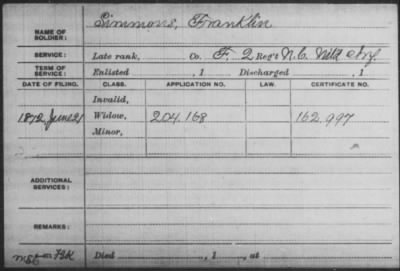 NAME OF SOLDIER: Simmons, Franklin
SERVICE: Late rank, Co. F, 2 Reg't N.C. Mtd Inf.
TERM OF SERVICE: Enlisted , 1 Discharged , 1
DATE OF FILING. CLASS. APPLICATION NO. LAW. CERTIFICATE NO.
Invalid,
1872, June 21 Widow, 204.168 162.997
Minor,
ADDITIONAL SERVICES:
REMARKS:
Died , 1 , at